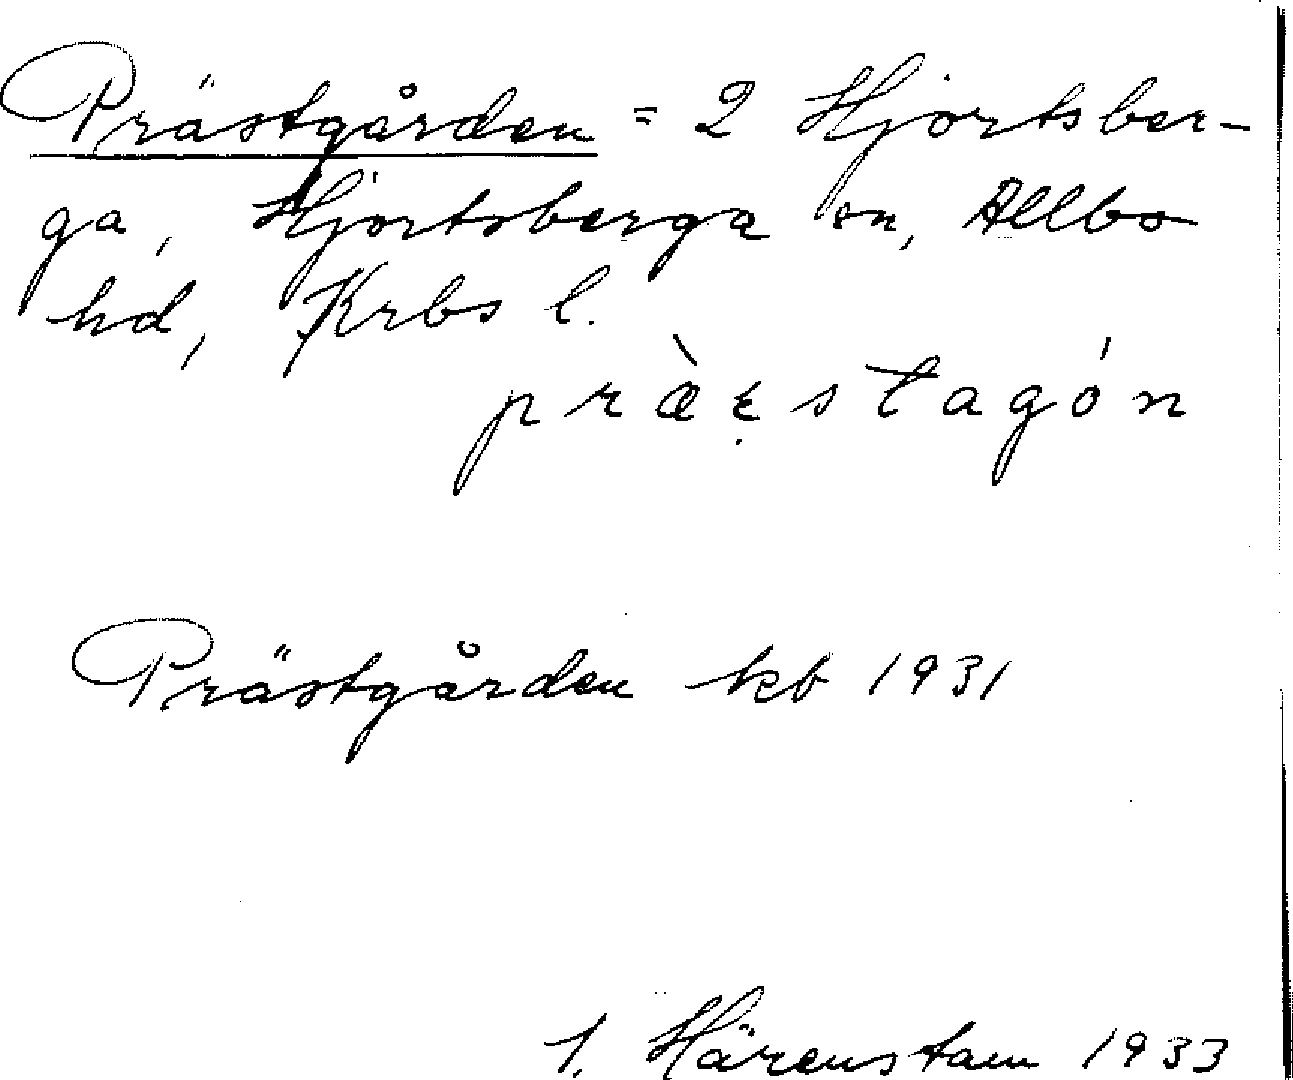 Prästgården = 2 Hjortsber-
ga, Hjortsberga sn, Allbo
hd, Krbs l.
præ̀ɛ̣stagón
Prästgården kb 1931
1. Härenstam 1933